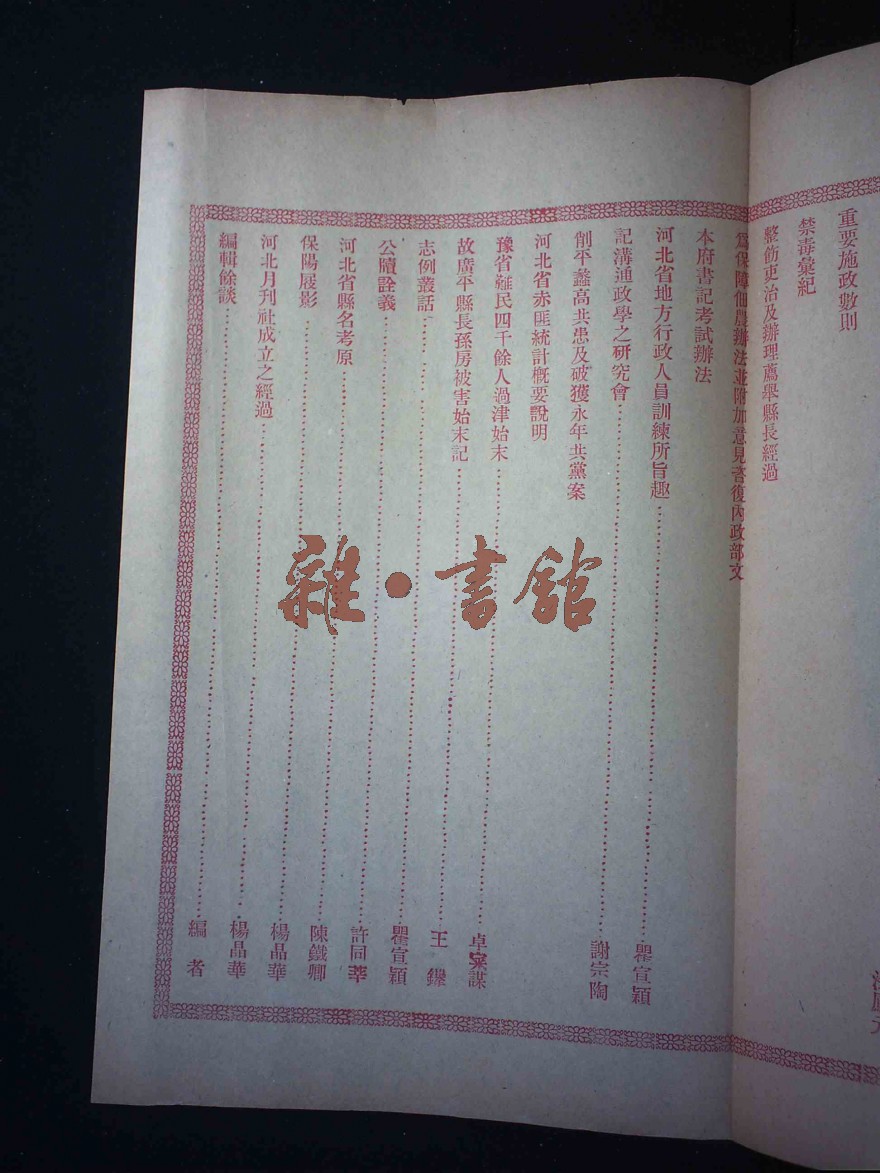 重要施政數則
禁毒彙紀
整飭吏治及辦理薦舉縣長經過
為保障佃農辦法並附加意見咨復內政部文
本府書記考試辦法
河北省地方行政人員訓練所旨趣……瞿宣穎
記溝通政學之研究會……謝宗陶
削平蠡高共患及破獲永年共黨案
河北省赤匪統計概要說明
豫省難民四千餘人過津始末……卓宣謀
故廣平縣長孫房被害始末記……王
志例叢話……瞿宣穎
公牘詮義……許同莘
河北省縣名考原……陳鐵卿
保陽屐影……楊晶華
河北月刊社成立之經過……楊晶華
編輯餘談……編者
雜·書館